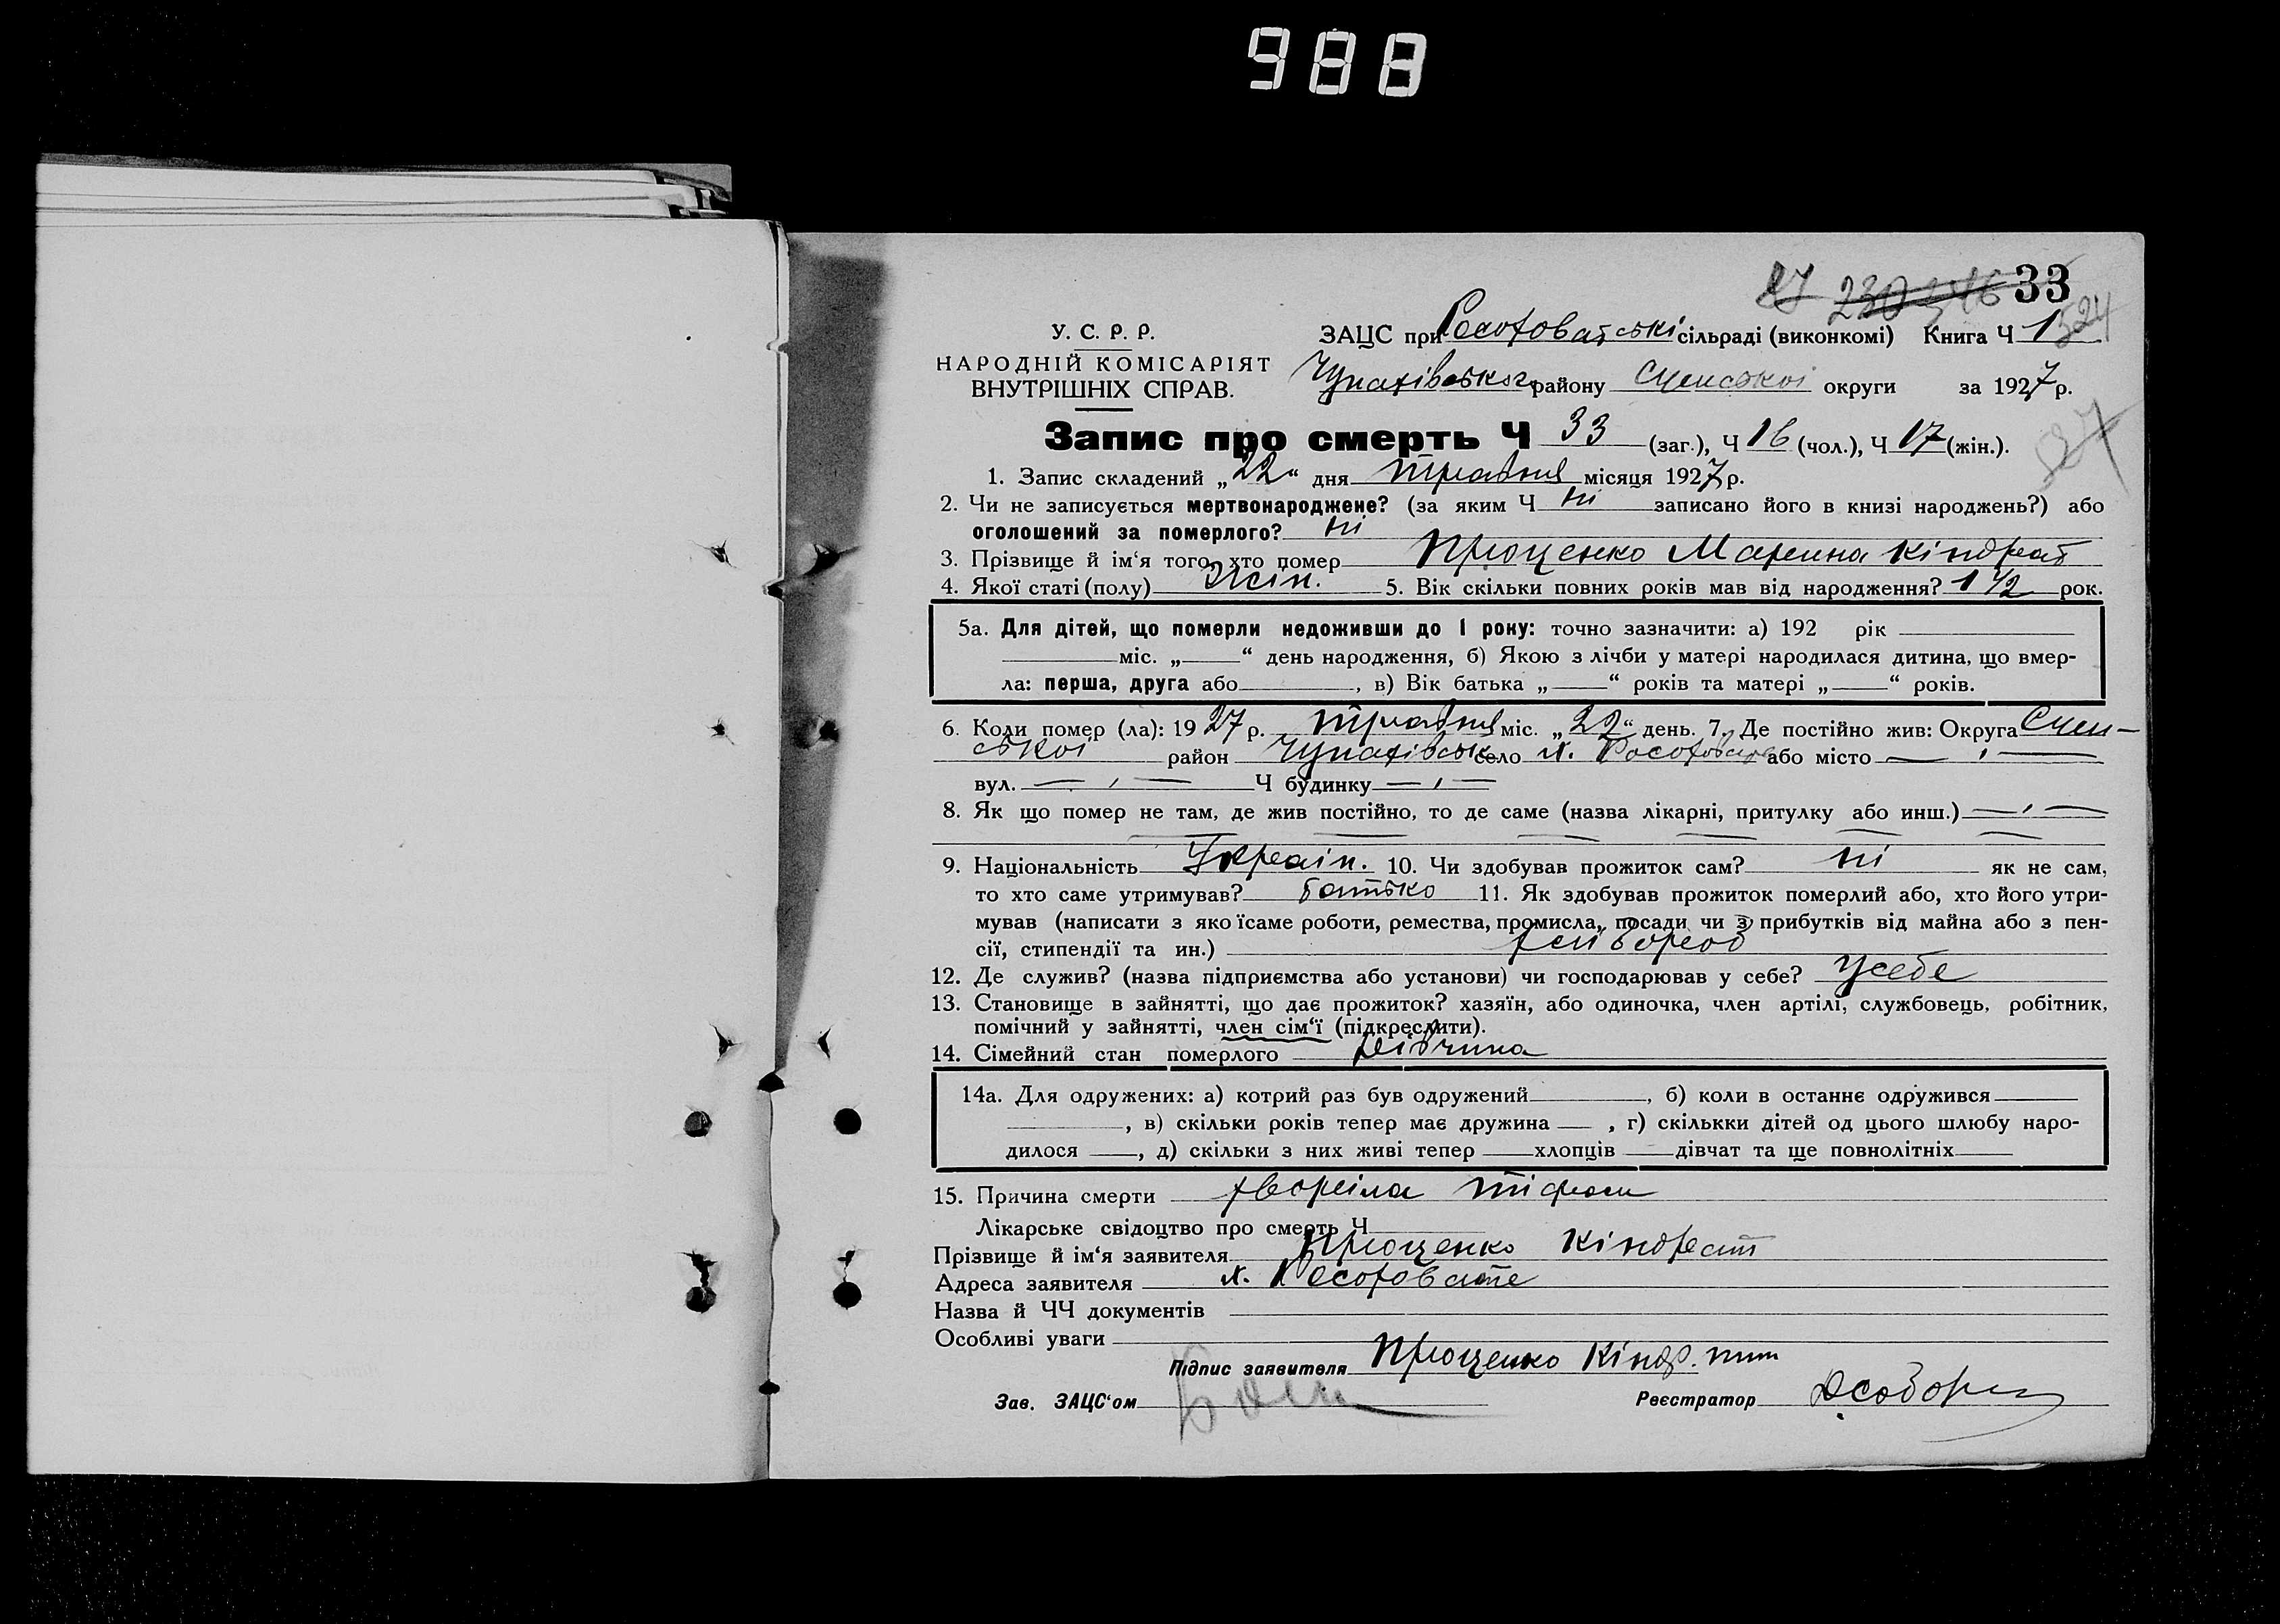 988
27 230 346 33
524
У. С. Р. Р.
НАРОДНІЙ КОМІСАРІЯТ
ВНУТРІШНІХ СПРАВ.
ЗАЦС при Росоховатські сільраді (виконкомі) Книга Ч 1
Чупахівського району Сумської округи за 1927 р.
Запис про смерть Ч 33 (заг.), Ч 16 (чол.), Ч 17 (жін.).
1. Запис складений „22“ дня травня місяця 1927 р.
2. Чи не записується мертвонароджене? (за яким Ч ні записано його в книзі народжень?) або
оголошений за померлого? ні
3. Прізвище й ім‘я того, хто помер Проценко Марина Кіндрат
4. Якої статі (полу) Жін. 5. Вік скільки повних років мав від народження? 1 1/2 рок.
5а. Для дітей, що померли недоживши до 1 року: точно зазначити: а) 192 рік
міс. „ “ день народження, б) Якою з лічби у матері народилася дитина, що вмер-
ла: перша, друга або , в) Вік батька „ “ років та матері „ “ років.
6. Коли помер (ла): 1927 р. травня міс. „22“ день. 7. Де постійно жив: Округа Сум-
ської район Чупахівськ село х. Росоховате або місто
вул. Ч будинку
8. Як що помер не там, де жив постійно, то де саме (назва лікарні, притулку або инш.)
9. Національність Украін. 10. Чи здобував прожиток сам? ні як не сам,
то хто саме утримував? батько 11. Як здобував прожиток померлий або, хто його утри-
мував (написати з яко їсаме роботи, ремества, промисла, посади чи з прибутків від майна або з пен-
сії, стипендії та ин.) хлібороб
12. Де служив? (назва підприємства або установи) чи господарював у себе? усебе
13. Становище в зайнятті, що дає прожиток? хазяїн, або одиночка, член артілі, службовець, робітник,
помічний у зайнятті, член сім‘ї (підкреслити).
14. Сімейний стан померлого дівчина
14а. Для одружених: а) котрий раз був одружений , б) коли в останнє одружився
, в) скільки років тепер має дружина , г) скількки дітей од цього шлюбу наро-
дилося , д) скільки з них живі тепер хлопців дівчат та ще повнолітніх
15. Причина смерти хворіла
Лікарське свідоцтво про смерть Ч
Прізвище й ім‘я заявителя Проценко Кіндрат
Адреса заявителя х. Росоховате
Назва й ЧЧ документів
Особливі уваги
Підпис заявителя Проценко Кіндр.
Зав. ЗАЦС‘ом Реєстратор